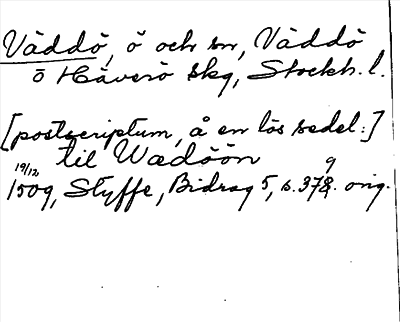 Väddö, ö och sn, Väddö
o Häverö skg, Stockh. l.
[postscriptum, å en lös sedel:]
til Wædöön
19/12 1509, Styffe, Bidrag 5, s. 379. orig.